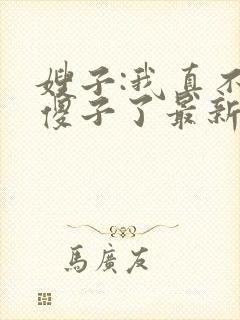 嫂子:我真不
傻子了最新
馬廣友